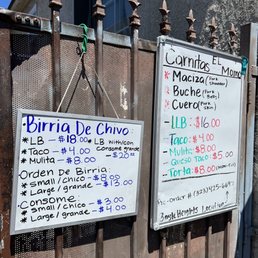 Birria De Chivo
* LB - $18.00
LB with/con
consome grande
- $20.00
* Taco - $4.00
* Mulita - $8.00
Orden De Birria:
* small/chico - $8.00
* Large/grande - $13.00
Consome:
* small/chico - $3.00
* Large/grande - $4.00
Carnitas EL Momo
* Maciza (Pork Shoulder)
* Buche (Pork
* Cuero (Pork Skin)
- LB: $16.00
- Taco: $4.00
- Mulita: $8.00
- Queso Taco $5.00
- Torta: $8.00
Pre-order # (323)
Boyle Heights Location